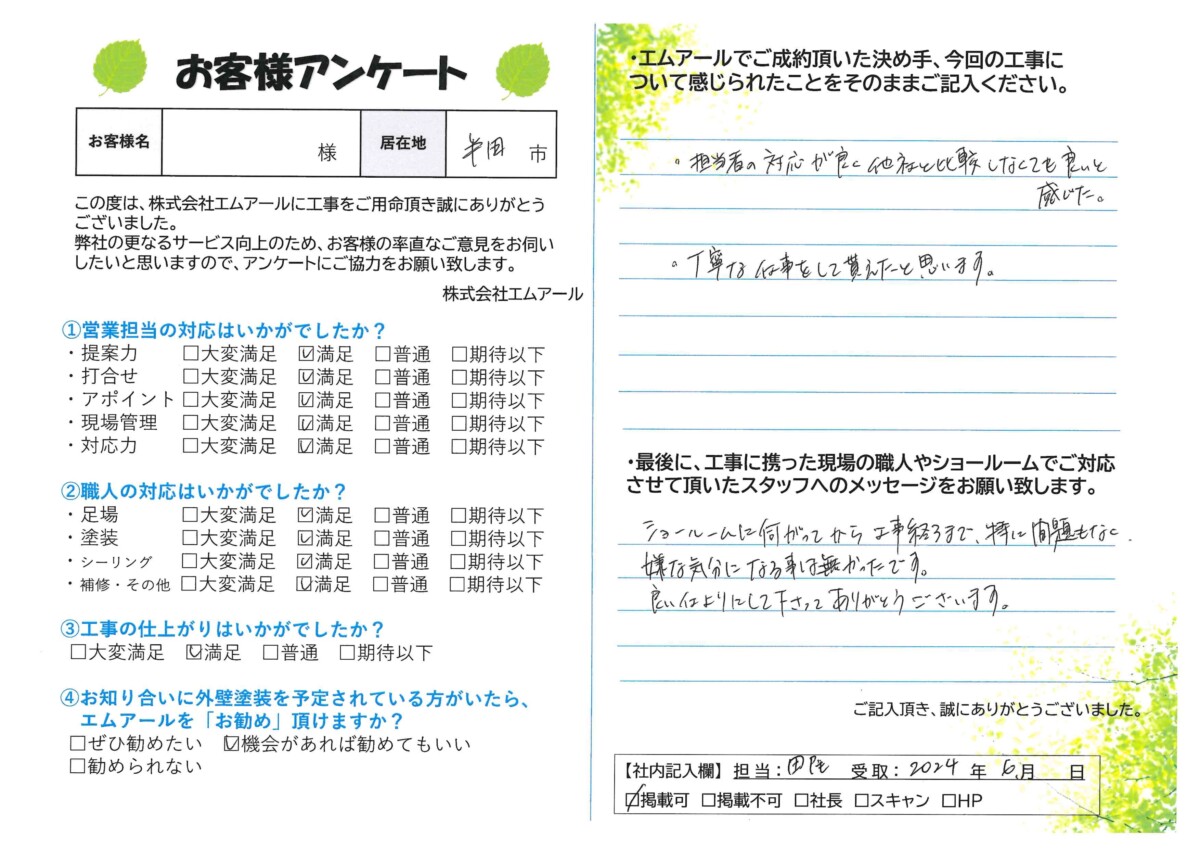 お客様アンケート
お客様名 様 居在地 半田 市
この度は、株式会社エムアールに工事をご用命頂き誠にありがとう
ございました。
弊社の更なるサービス向上のため、お客様の率直なご意見をお伺い
したいと思いますので、アンケートにご協力をお願い致します。
株式会社エムアール
①営業担当の対応はいかがでしたか？
・提案力 □大変満足 ☑満足 □普通 □期待以下
・打合せ □大変満足 ☑満足 □普通 □期待以下
・アポイント □大変満足 ☑満足 □普通 □期待以下
・現場管理 □大変満足 ☑満足 □普通 □期待以下
・対応力 □大変満足 ☑満足 □普通 □期待以下
②職人の対応はいかがでしたか？
・足場 □大変満足 ☑満足 □普通 □期待以下
・塗装 □大変満足 ☑満足 □普通 □期待以下
・シーリング □大変満足 ☑満足 □普通 □期待以下
・補修・その他 □大変満足 ☑満足 □普通 □期待以下
③工事の仕上がりはいかがでしたか？
□大変満足 ☑満足 □普通 □期待以下
④お知り合いに外壁塗装を予定されている方がいたら、
エムアールを「お勧め」頂けますか？
□ぜひ勧めたい ☑機会があれば勧めてもいい
□勧められない
・エムアールでご成約頂いた決め手、今回の工事に
ついて感じられたことをそのままご記入ください。
。担当者の対応が良く他社と比較しなくても良いと
感じた。
。丁寧な仕事をして貰えたと思います。
・最後に、工事に携った現場の職人やショールームでご対応
させて頂いたスタッフへのメッセージをお願い致します。
ショールームに伺がってから工事終るまで、特に問題もなく
嫌な気分になる事は無かったです。
良い仕よりにして下さってありがとうございます。
ご記入頂き、誠にありがとうございました。
【社内記入欄】 担当： 受取：2024 年 6月 日
☑掲載可 □掲載不可 □社長 □スキャン □HP